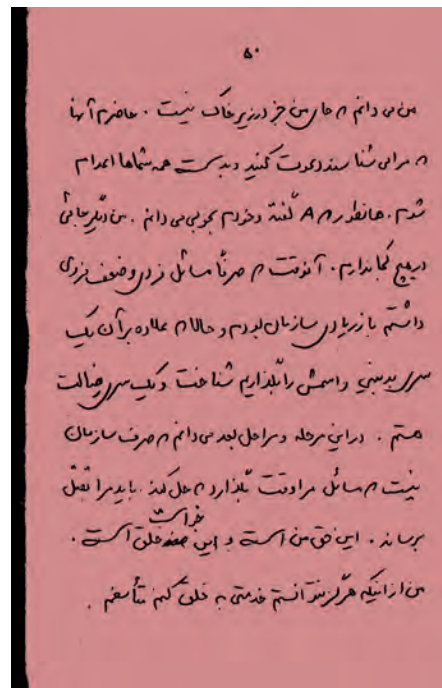 ۵۰
من می دانم که جای من جز در زیر خاک نیست . حاضرم آنها
که مرا می شناسند دعوت کنید و بدست همه شماها اعدام
شوم . همانطور که A گفته و خودم بخوبی می دانم . من دیگر جائی
در هیچ کجا ندارم . آنوقت که صرفاً مسائل فردی و ضعف فردی
داشتم باز زیادی سازمان بودم و حالا که علاوه بر آن یک
سری بدبینی و اسمش را بگذاریم شناخت و یک سری رضالت
هستم . در این مرحله و مراحل بعد می دانم که صرف سازمان
نیست که مسائل مرا وقت بگذارد که حل کند . باید مرا بقتل
برساند . این حق من است و این خواست خلق است .
من از اینکه هرگز نتوانستم خدمتی به خلق کنم متأسفم .